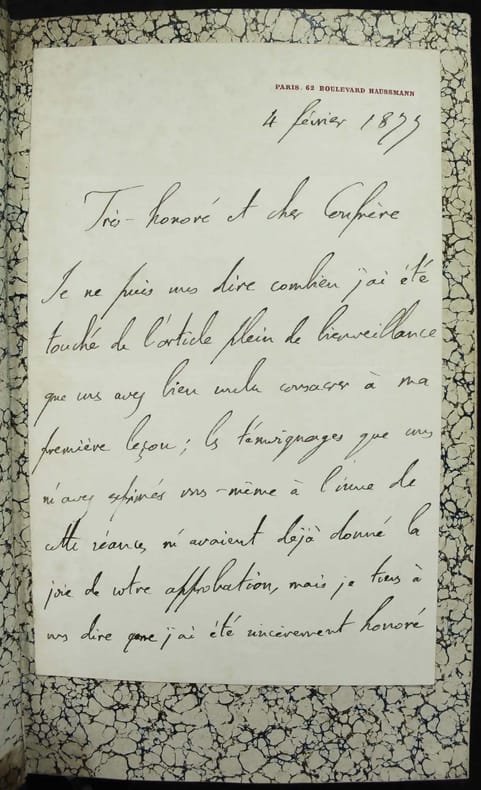 PARIS. 62 BOULEVARD HAUSSMANN
4 février 1875
Très-honoré et cher Confrère
Je ne puis vous dire combien j'ai été
touché de l'article plein de bienveillance
que vous avez bien voulu consacrer à ma
première leçon ; les témoignages que vous
m'avez exprimés vous-même à l'issue de
cette séance, m'avaient déjà donné la
joie de votre approbation, mais je tiens à
vous dire que j'ai été sincèrement honoré